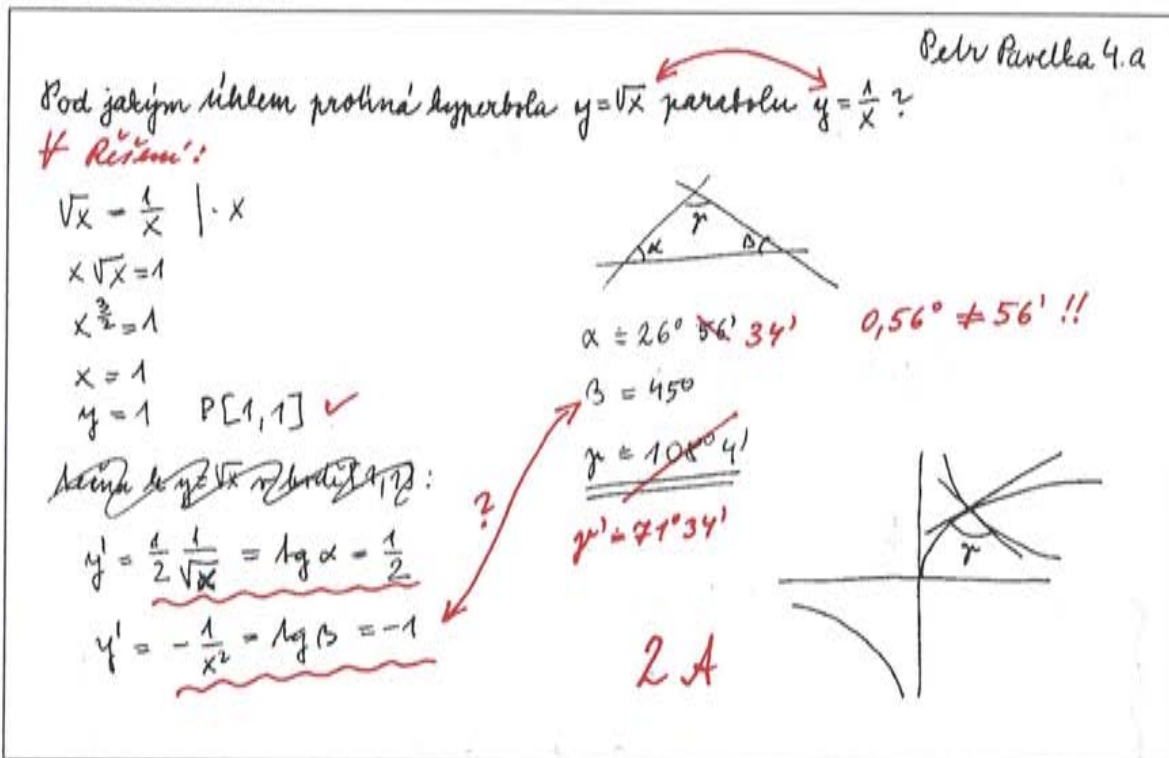 Petr Pavelka 4.a
Pod jakým úhlem protíná hyperbola y=√x parabolu y=1/x ?
Řešení:
√x = 1/x | · x
x√x = 1
x^(3/2) = 1
x = 1
y = 1 P[1,1] ✓
y' = 1/2 1/√x = tg α = 1/2
y' = -1/x² = tg β = -1
?
α β γ
α ≐ 26° 56' 34'
0,56° ≠ 56' !!
β = 45°
γ ≐ 108° 4'
γ' ≐ 71°34'
γ
2 A